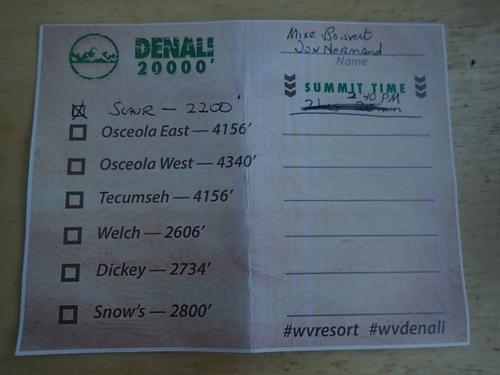 Mike Boisvert
Jon Normand
Name
DENALI
20000'
SUMMIT TIME
2:40 PM
2200'
Osceola East — 4156'
Osceola West — 4340'
Tecumseh — 4156'
Welch — 2606'
Dickey — 2734'
Snow's — 2800'
#wvresort #wvdenali